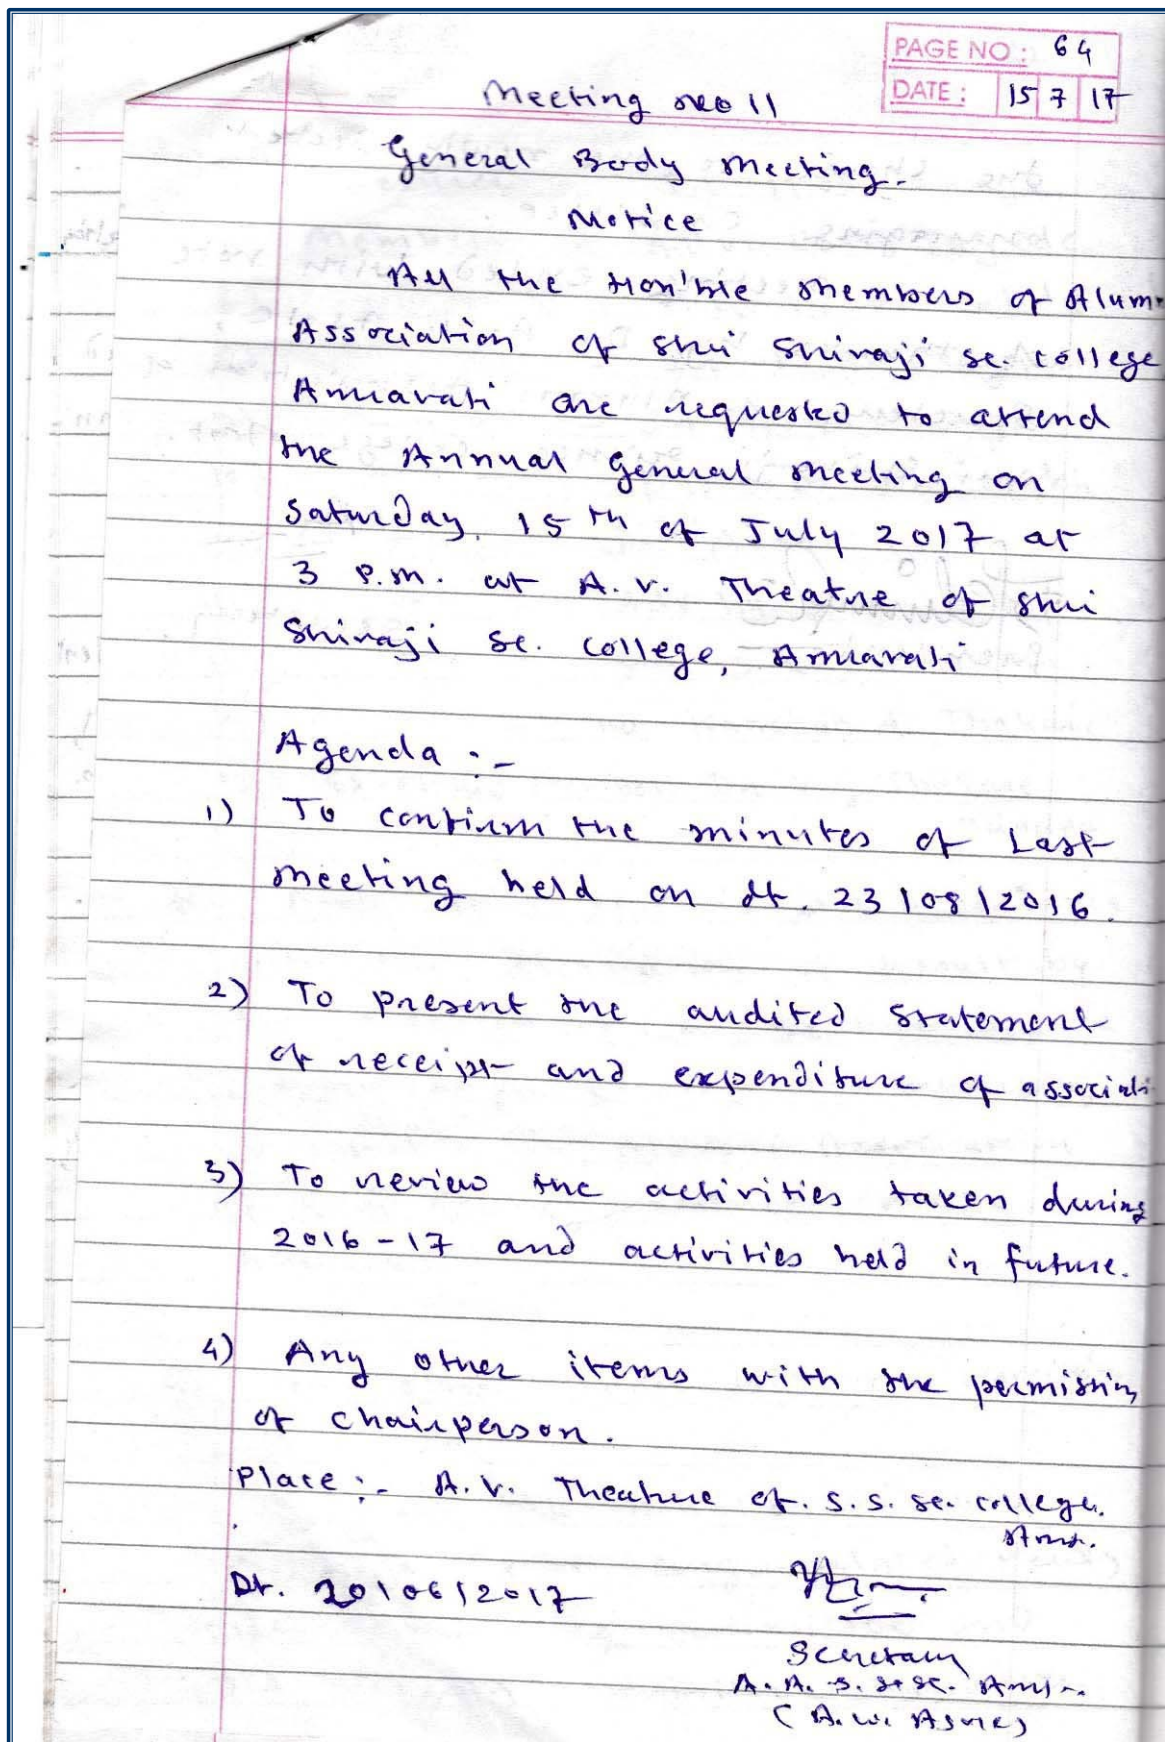 PAGE NO : 64
DATE : 15 7 17
Meeting no 11
General Body Meeting.
Notice
All the Hon'ble members of Alum
Association of Shri Shivaji Sc. college
Amravati are requested to attend
the Annual General meeting on
Saturday, 15th of July 2017 at
3 P.M. at A.V. Theatre of Shri
Shivaji Sc. College, Amravati
Agenda :-
1) To confirm the minutes of Last
meeting held on dt. 23/08/2016.
2) To present the audited statement
of receipt and expenditure of associati
3) To review the activities taken during
2016-17 and activities held in future.
4) Any other items with the permission
of chairperson.
Place :- A.V. Theatre of. S.S. Sc. college.
Amr.
Dt. 20/06/2017
Secretary